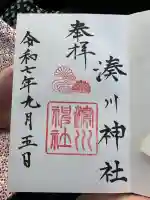 奉拝
湊川神社
湊川
神社
令和七年九月五日